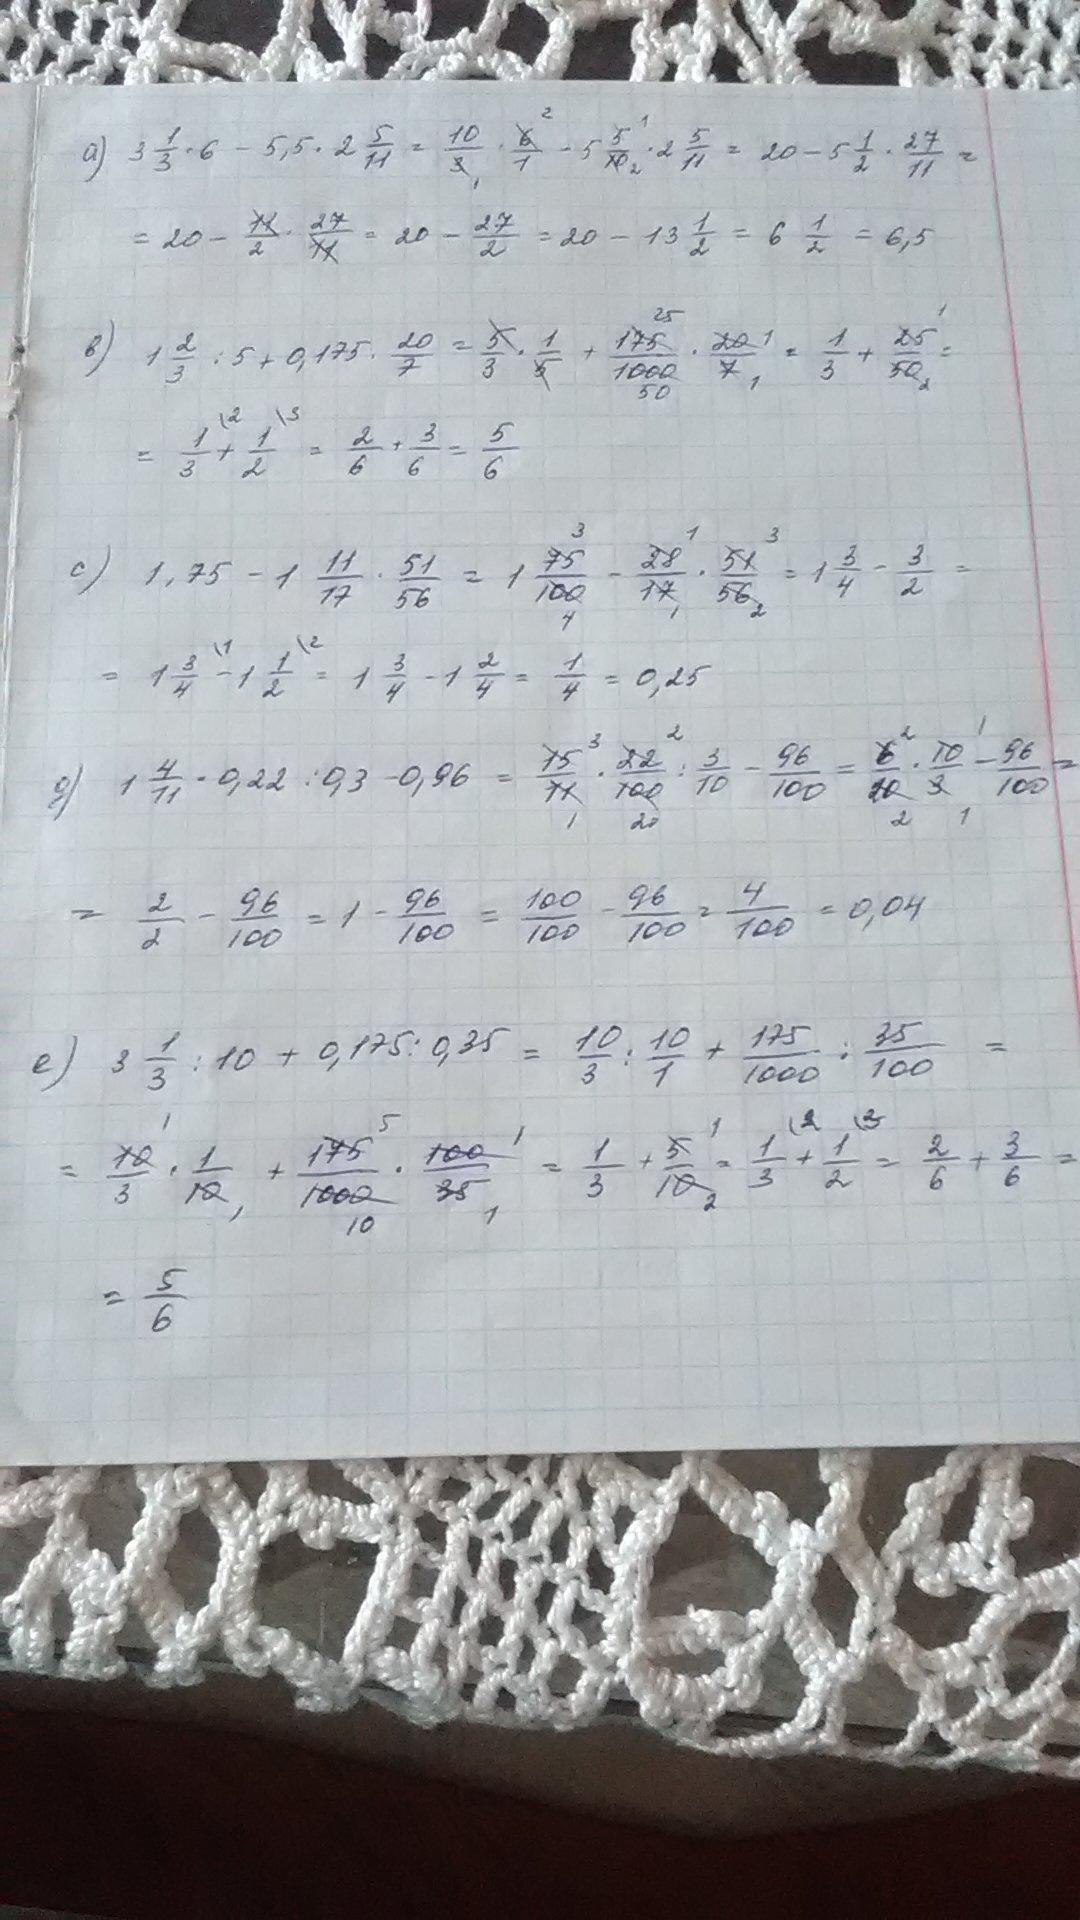 а) 3 1/3 · 6 − 5,5 · 2 5/11 = 10/3 · 6/1 − 5 5/10 · 2 5/11 = 20 − 5 1/2 · 27/11 =
= 20 − 11/2 · 27/11 = 20 − 27/2 = 20 − 13 1/2 = 6 1/2 = 6,5
в) 1 2/3 : 5 + 0,175 · 20/7 = 5/3 · 1/5 + 175/1000 · 20/7 = 1/3 + 25/50 =
= 1/3 + 1/2 = 2/6 + 3/6 = 5/6
с) 1,75 − 1 11/17 · 51/56 = 1 75/100 − 28/17 · 51/56 = 1 3/4 − 3/2 =
= 1 3/4 − 1 1/2 = 1 3/4 − 1 2/4 = 1/4 = 0,25
д) 1 4/11 · 0,22 : 0,3 − 0,96 = 15/11 · 22/100 : 3/10 − 96/100 = 6/20 · 10/3 − 96/100 =
= 2/2 − 96/100 = 1 − 96/100 = 100/100 − 96/100 = 4/100 = 0,04
е) 3 1/3 : 10 + 0,175 : 0,35 = 10/3 : 10/1 + 175/1000 : 35/100 =
= 10/3 · 1/10 + 175/1000 · 100/35 = 1/3 + 5/10 = 1/3 + 1/2 = 2/6 + 3/6 =
= 5/6